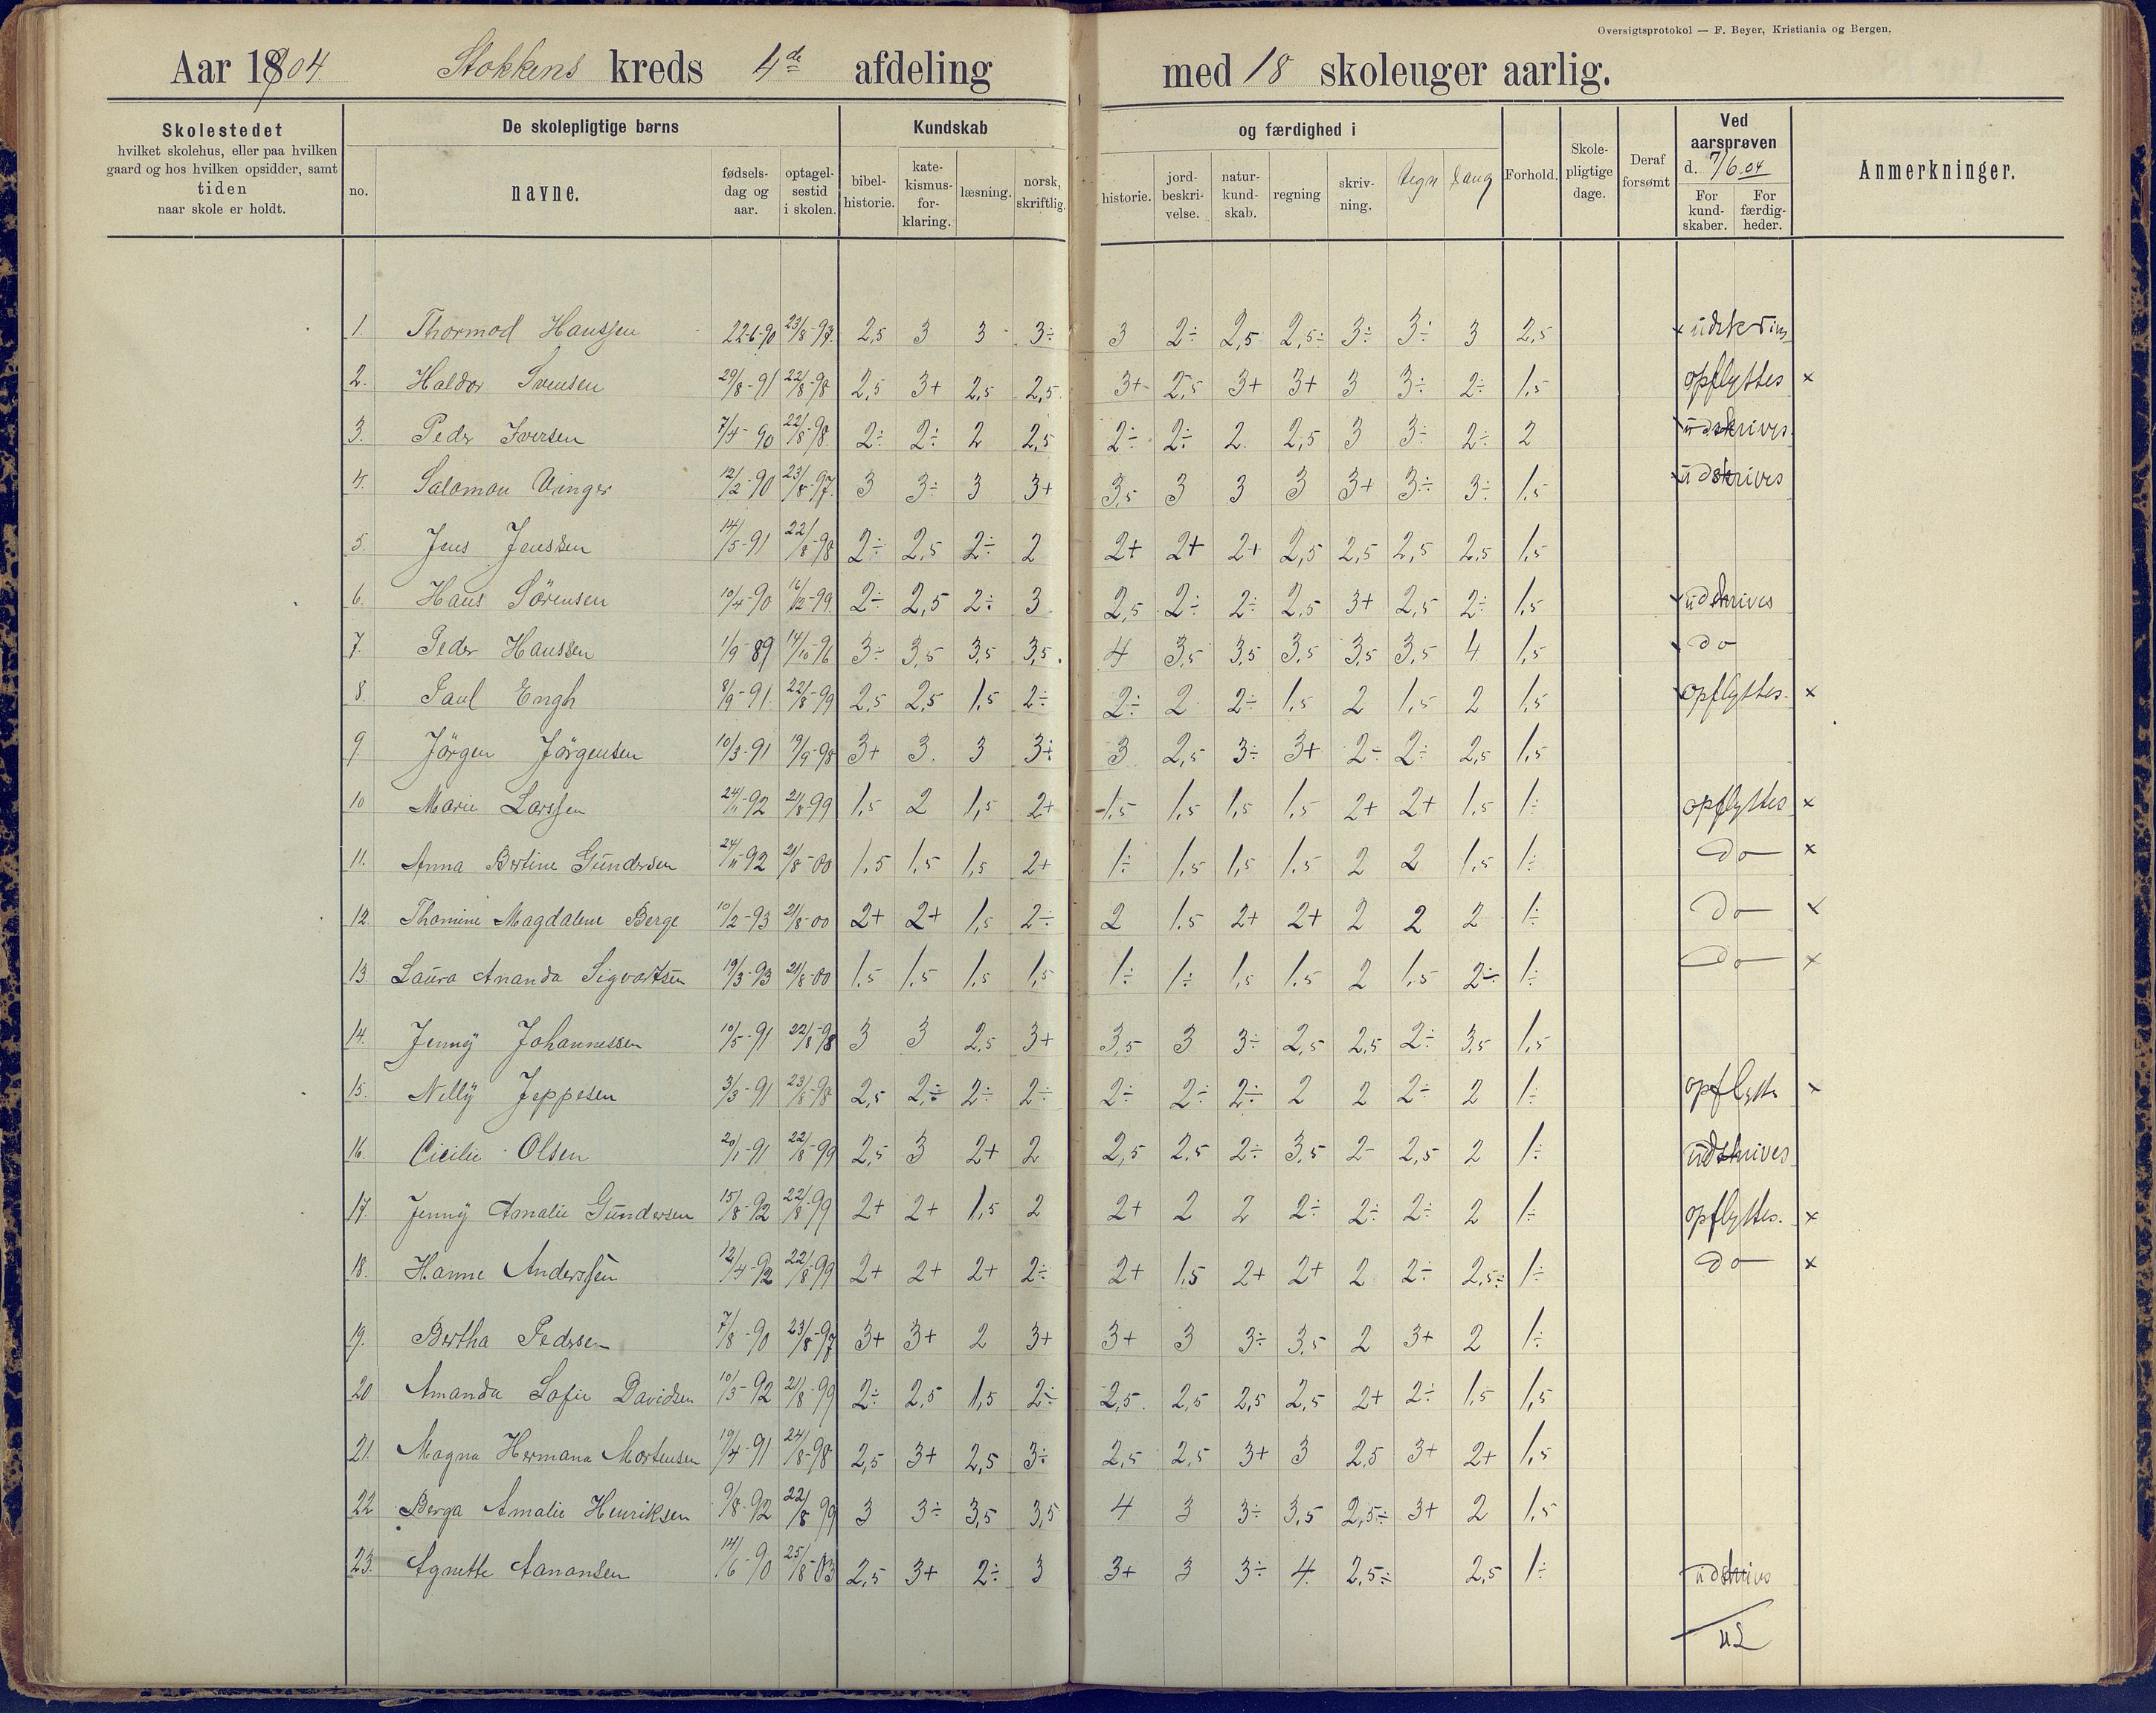 Oversigtsprotokol — F. Beyer, Kristiania og Bergen.
Aar 1904 Stokkens kreds 4de afdeling med 18 skoleuger aarlig.
Skolestedet hvilket skolehus, eller paa hvilken gaard og hos hvilken opsidder, samt tiden naar skole er holdt.
De skolepligtige børns
no. navne. fødsels-dag og aar. optagel-sestid i skolen.
Kundskab og færdighed i
bibel-historie. kate-kismus-for-klaring. læsning. norsk, skriftlig. historie. jord-beskri-velse. natur-kund-skab. regning skriv-ning. tegn sang
Forhold. Skole-pligtige dage. Deraf forsømt
Ved aarsprøven d. 7/6.04 For kund-skaber. For færdig-heder.
Anmerkninger.
1. Thormod Hanssen 22-6-90 23/8-97. 2,5 3 3 3÷ 3 2÷ 2,5 2,5÷ 3÷ 3÷ 3 2,5
2. Haldor Svensen 29/8-91 22/8-98 2,5 3+ 2,5 2,5 3+ 2,5 3+ 3+ 3 3÷ 2÷ 1,5 opflyttes x
3. Peder Iversen 7/4-90 22/8-98. 2÷ 2÷ 2 2,5 2÷ 2÷ 2 2,5 3 3÷ 2÷ 2 udskrives.
4. Salamon Vinger 12/2-90 23/8-97. 3 3÷ 3 3+ 3,5 3 3 3 3+ 3÷ 3÷ 1,5 udskrives
5. Jens Jenssen 14/5-91 22/8-98 2÷ 2,5 2÷ 2 2+ 2+ 2+ 2,5 2,5 2,5 2,5 1,5
6. Hans Sörensen 10/4-90 16/12-99. 2÷ 2,5 2÷ 3 2,5 2÷ 2÷ 2,5 3+ 2,5 2÷ 1,5 udskrives
7. Peder Hanssen 1/9-89 14/10-96 3÷ 3,5 3,5 3,5. 4 3,5 3,5 3,5 3,5 3,5 4 1,5 do
8. Paul Engh 8/9-91 22/8-99 2,5 2,5 1,5 2÷ 2÷ 2 2÷ 1,5 2 1,5 2 1,5 opflyttes. x
9. Jörgen Jörgensen 10/3-91 19/9-98 3+ 3. 3 3÷ 3 2,5 3÷ 3+ 2÷ 2÷ 2,5 1,5
10 Marie Larssen 24/11-92 21/8-99 1,5 2 1,5 2+ 1,5 1,5 1,5 1,5 2+ 2+ 1,5 1÷ opflyttes x
11. Anna Bertine Gundersen 24/11-92 21/8-00 1,5 1,5 1,5 2+ 1÷ 1,5 1,5 1,5 2 2 1,5 1÷ do x
12. Thomine Magdalene Berge 10/2-93 21/8-00 2+ 2+ 1,5 2÷ 2 1,5 2+ 2+ 2 2 2 1÷ do x
13. Laura Ananda Sigvartsen 19/3-93 21/8-00 1,5 1,5 1,5 1,5 1÷ 1÷ 1,5 1,5 2 1,5 2÷ 1÷ do x
14. Jenny Johannessen 10/5-91 22/8-98 3 3 2,5 3+ 3,5 3 3÷ 2,5 2,5 2÷ 3,5 1,5
15. Nelly Jeppesen 3/3-91 23/8-98 2,5 2÷ 2÷ 2÷ 2÷ 2÷ 2÷ 2 2 2÷ 2 1÷ x
16. Cicilie Olsen 20/1-91 22/8-99 2,5 3 2+ 2 2,5 2,5 2÷ 3,5 2- 2,5 2 1÷ udskrives
17. Jenny Amalie Gundersen 15/8-92 22/8-99 2+ 2+ 1,5 2 2+ 2 2 2÷ 2÷ 2÷ 2 1÷ opflyttes. x
18. Hanne Anderssen 12/4-92 22/8-99 2+ 2+ 2+ 2÷ 2+ 1,5 2+ 2+ 2 2÷ 2,5÷ 1÷ do x
19. Bertha Pedersen 7/8-90 23/8-97 3+ 3+ 2 3+ 3+ 3 3÷ 3,5 2 3+ 2 1÷
20 Amanda Sofie Davidsen 10/5-92 21/8-99 2÷ 2,5 1,5 2÷ 2,5 2,5 2,5 2,5 2+ 2÷ 1,5 1,5
21. Magna Hermana Mortensen 19/4-91 24/8-98 2,5 3+ 2,5 3÷ 2,5 2,5 3+ 3 2,5 3+ 2+ 1,5
22 Berga Amalie Henriksen 9/8-92 22/8-99 3 3÷ 3,5 3,5 4 3 3÷ 3,5 2,5÷ 3+ 2 1,5
23. Agnette Aanonsen 14/6-90 25/8-03 2,5 3+ 2÷ 3 3+ 3 3÷ 4 2,5÷ 2,5 1÷ udskrives